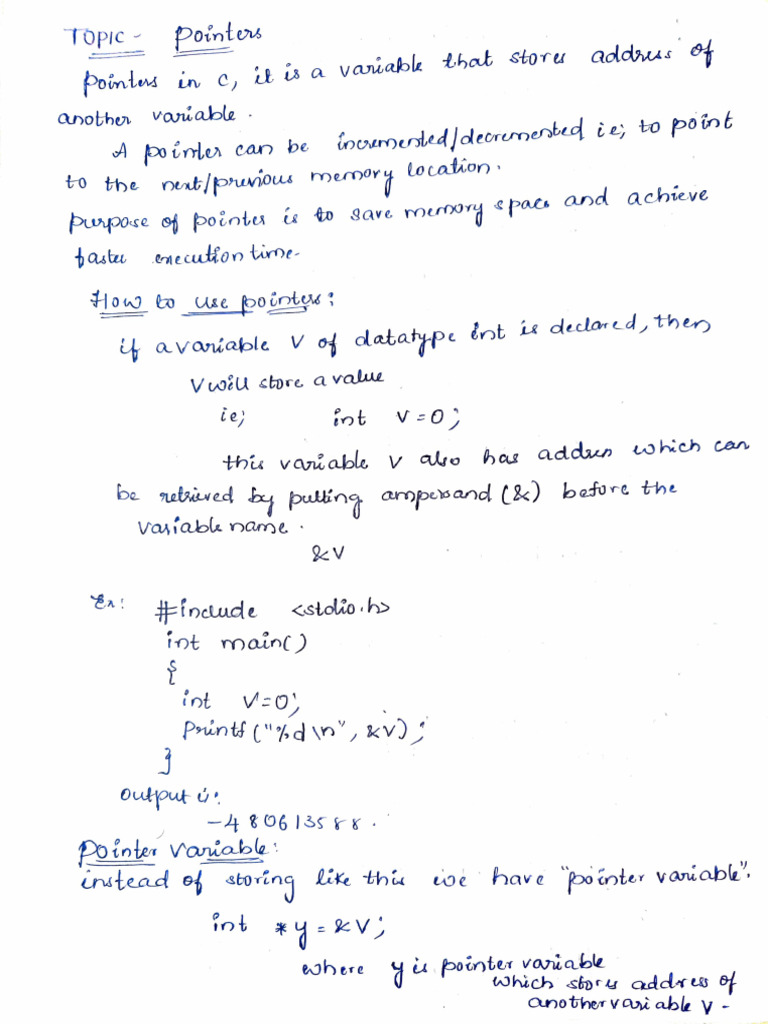 TOPIC - Pointers
Pointers in c, it is a variable that stores address of
another variable.
A pointer can be incremented/decremented ie; to point
to the next/previous memory location.
purpose of pointer is to save memory space and achieve
faster execution time.
How to use pointers:
if a variable V of datatype int is declared, then
V will store a value
ie; int V=0;
this variable V also has address which can
be retrieved by putting ampersand (&) before the
variable name.
&V
Ex: #include <stdio.h>
int main()
{
int V=0;
Printf("%d\n", &V);
}
output is:
-480613588.
Pointer Variable:
instead of storing like this we have "pointer variable".
int *y = &V;
where y is pointer variable
which stores address of
another variable V -